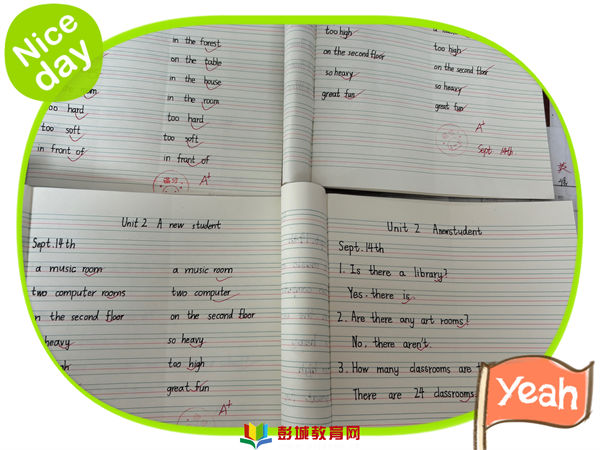 Nice
day
in the forest
on the table
in the house
in the room
too hard
too soft
in front of
A+
room
too hard
too soft
in front of
too high
on the second floor
so heavy
great fun
too high
on the second floor
so heavy
great fun
A+
Sept. 14th
Unit 2 A new student
Sept. 14th
a music room
two computer rooms
on the second floor
heavy
a music room
two computer
on the second floor
so heavy
too high
great fun
A+
Unit 2 Anewstudent
Sept. 14th
1. Is there a library?
Yes, there is.
2. Are there any art rooms?
No, there aren't.
3. How many classrooms are
There are 24 classrooms
Yeah
彭城教育网